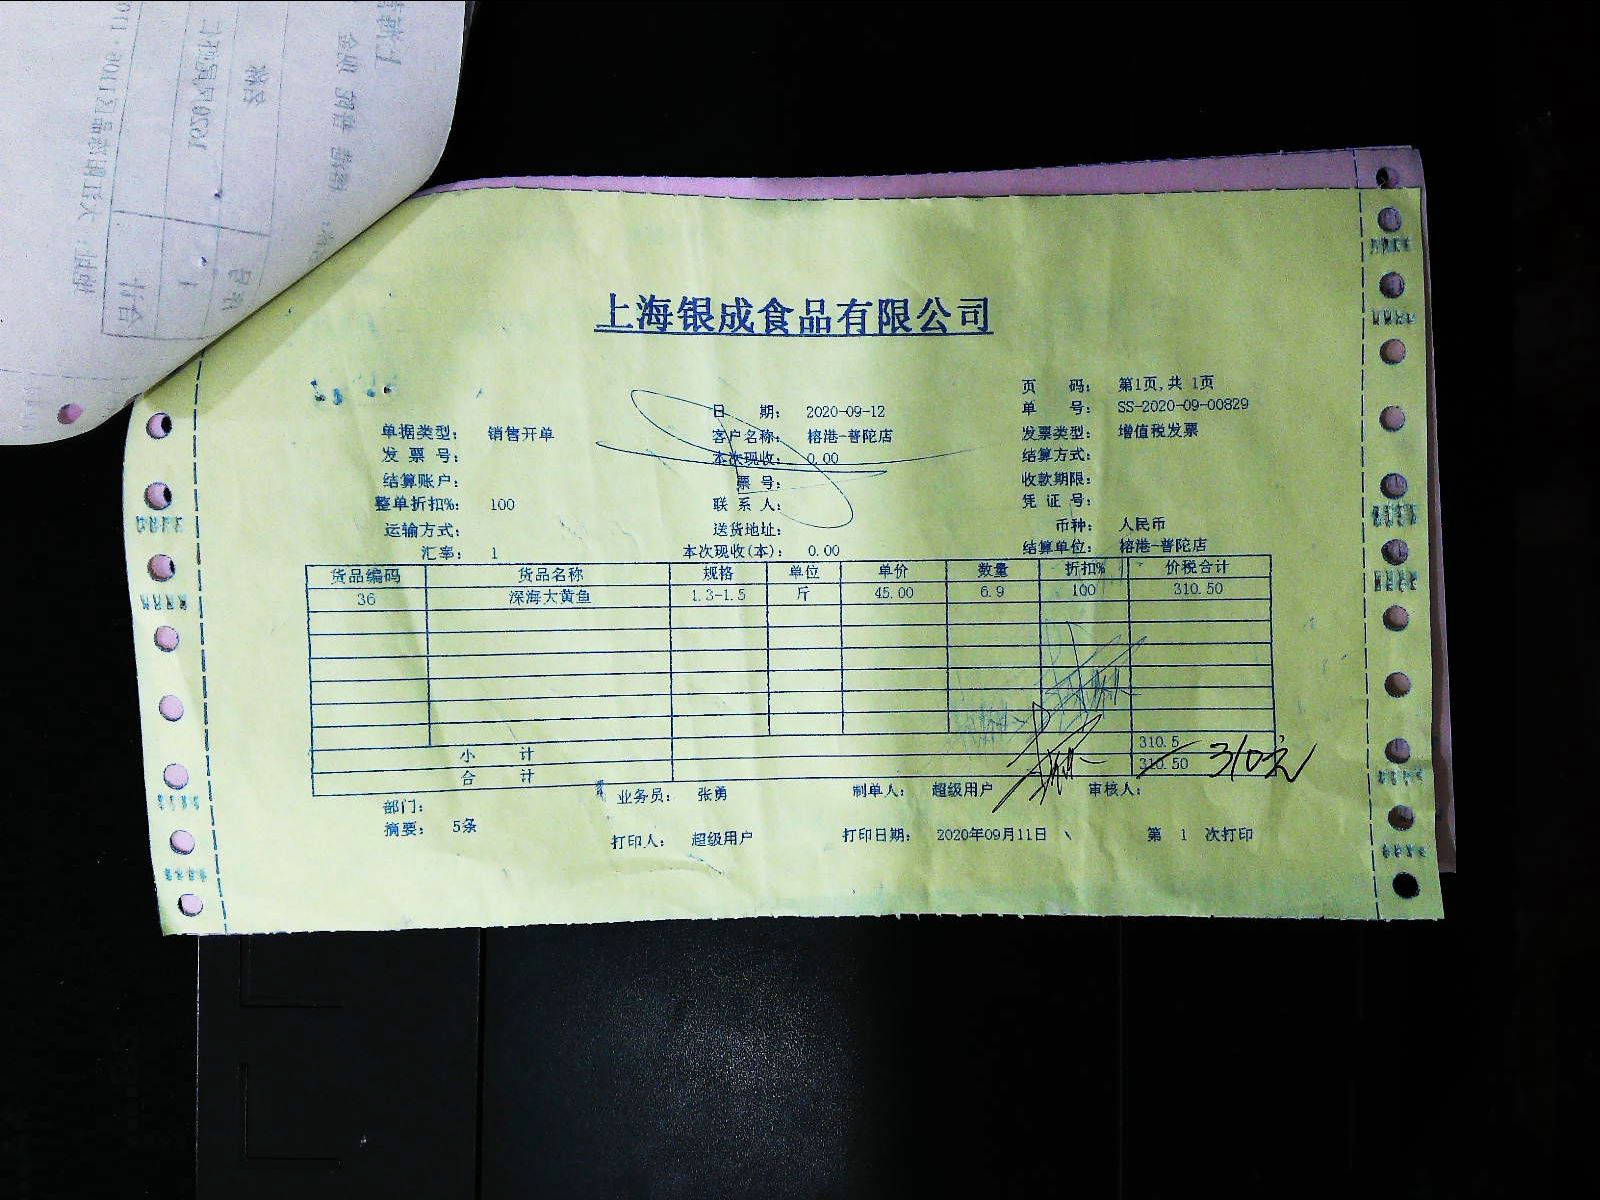 上海银成食品有限公司
页 码： 第1页,共 1页
日 期： 2020-09-12 单 号： SS-2020-09-00829
单据类型： 销售开单 客户名称： 榕港-普陀店 发票类型： 增值税发票
发 票 号： 本次现收： 0.00 结算方式：
结算账户： 票 号： 收款期限：
整单折扣%： 100 联 系 人： 凭 证 号：
运输方式： 送货地址： 币种： 人民币
汇率： 1 本次现收(本)： 0.00 结算单位： 榕港-普陀店
货品编码 货品名称 规格 单位 单价 数量 折扣% 价税合计
36 深海大黄鱼 1.3-1.5 斤 45.00 6.9 100 310.50
小 计 310.5
合 计 310.50 310元
部门： 业务员： 张勇 制单人： 超级用户 审核人：
摘要： 5条 打印人： 超级用户 打印日期： 2020年09月11日 第 1 次打印